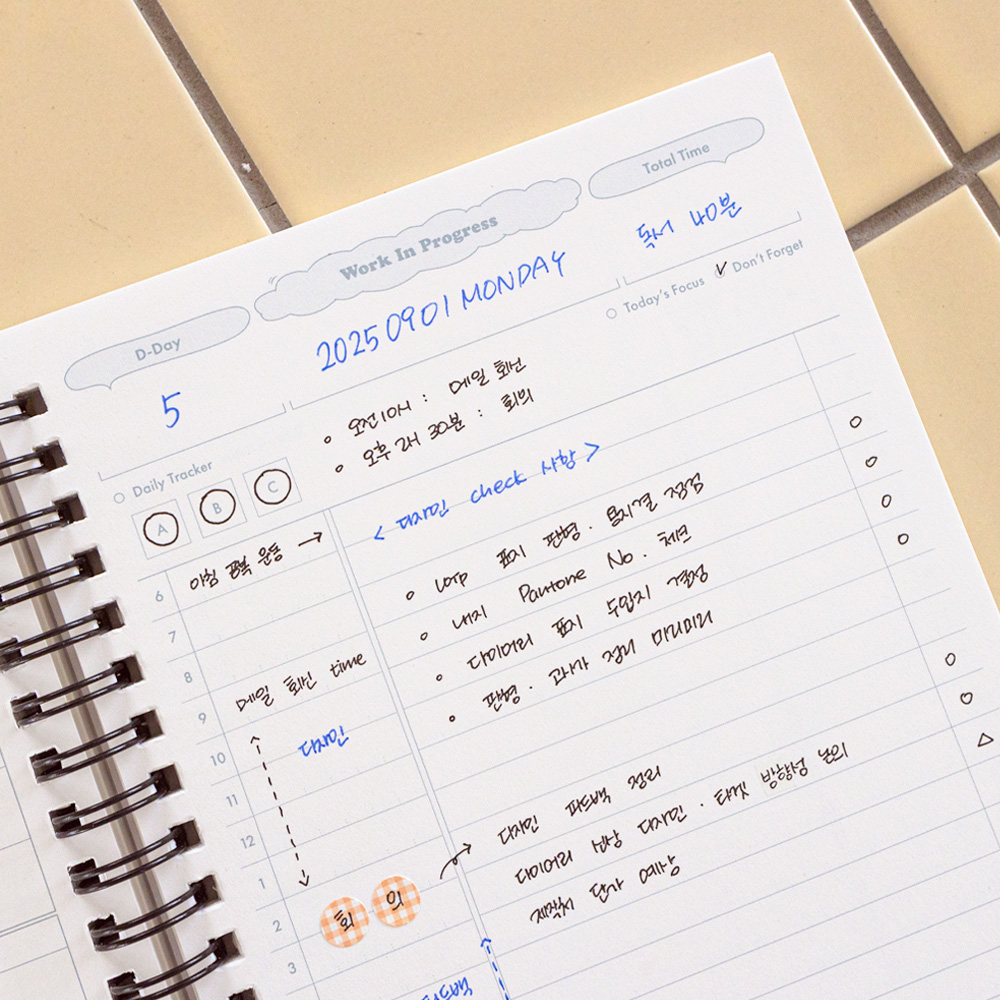 Total Time
Work In Progress
D-Day
독서 40분
20250901 MONDAY
5
Today's Focus
Don't Forget
오전10시 : 메일 회신
오후 2시 30분 : 회의
Daily Tracker
A B C
< 디자인 check 사항 >
6 아침 공복 운동 →
7
8
메일 회신 time
9
10 디자인
11
12
1
2 회의
3
피드백
표지 판형 · 용지결 점검
내지 Pantone No. 체크
다이어리 표지 수입지 결정
판형 · 과사 정리 미리미리
디자인 피드백 정리
다이어리 신상 디자인 · 타겟 방향성 논의
제작처 단가 예상